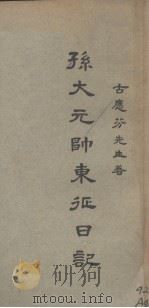 古應芬先生著
孫大元帥東征日記
92